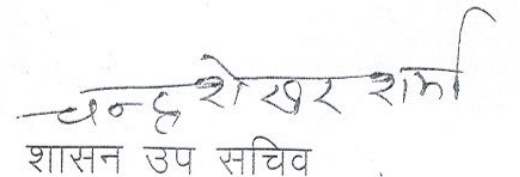 चन्द्र शेखर शर्मा
शासन उप सचिव